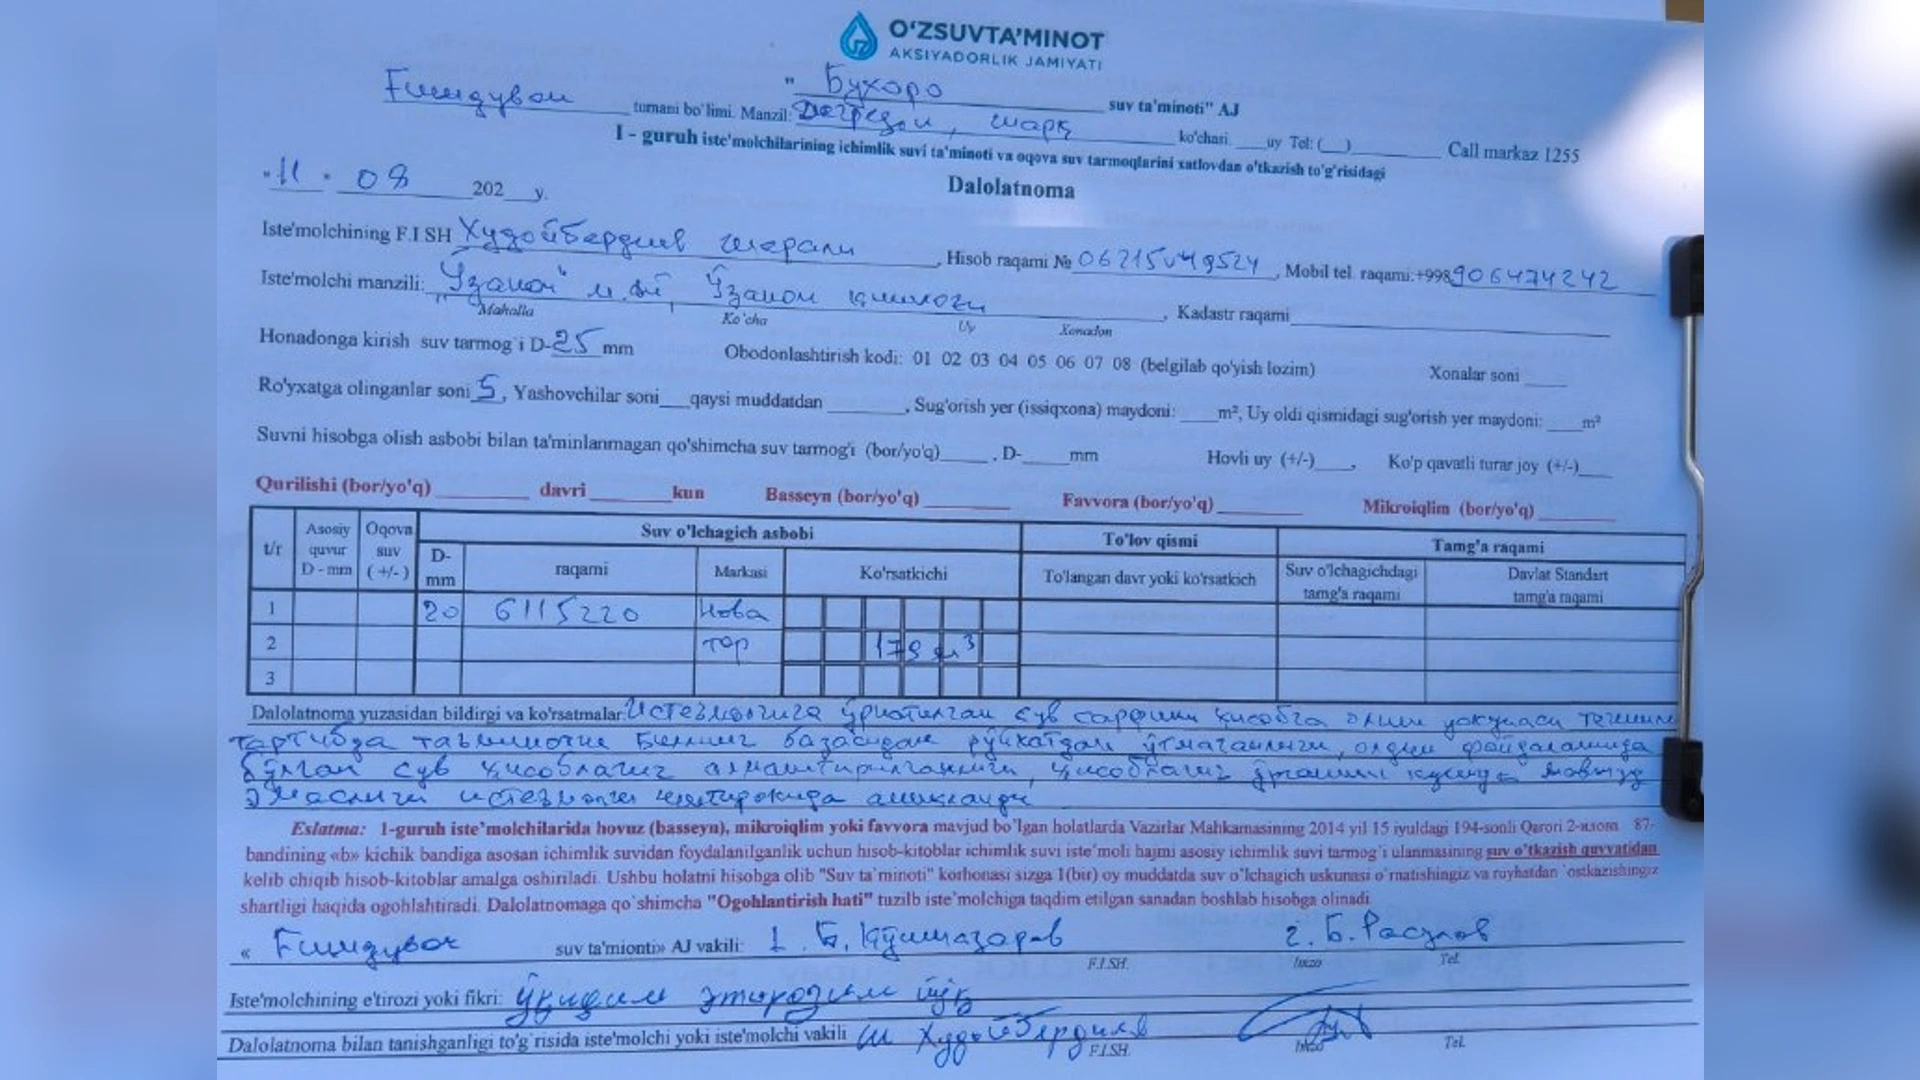 O‘ZSUVTA’MINOT
AKSIYADORLIK JAMIYATI
"Бухоро suv ta'minoti" AJ
Ғиждувон tumani bo'limi. Manzil: шарқ ko'chari. ___uy Tel: (__)________ Call markaz 1255
I - guruh iste'molchilarining ichimlik suvi ta'minoti va oqova suv tarmoqlarini xatlovdan o'tkazish to'g'risidagi
Dalolatnoma
"11" 08 202__y.
Iste'molchining F.I.SH Худойбердиев Шерали, Hisob raqami № Mobil tel. raqami:+998 906474242
Iste'molchi manzili: "Ўзанон" м.ф.й, Ўзанон қишлоғи, Kadastr raqami
Mahalla Ko'cha Uy Xonadon
Honadonga kirish suv tarmog'i D-25 mm Obodonlashtirish kodi: 01 02 03 04 05 06 07 08 (belgilab qo'yish lozim) Xonalar soni ____
Ro'yxatga olinganlar soni 5, Yashovchilar soni___qaysi muddatdan _______, Sug'orish yer (issiqxona) maydoni: ____m², Uy oldi qismidagi sug'orish yer maydoni: ____m²
Suvni hisobga olish asbobi bilan ta'minlanmagan qo'shimcha suv tarmog'i (bor/yo'q)_____, D-_____mm Hovli uy (+/-)____, Ko'p qavatli turar joy (+/-)____
Qurilishi (bor/yo'q) ________ davri _______kun Basseyn (bor/yo'q) ________ Favvora (bor/yo'q) ________ Mikroiqlim (bor/yo'q) ________
t/r Asosiy quvur D - mm Oqova suv (+/-) Suv o'lchagich asbobi To'lov qismi Tamg'a raqami
D-mm raqami Markasi Ko'rsatkichi To'langan davr yoki ko'rsatkich Suv o'lchagichdagi tamg'a raqami Davlat Standart tamg'a raqami
1 20 6115220 Нова
2 тор 179 м3
3
Dalolatnoma yuzasidan bildirgi va ko'rsatmalar: Истеъмолчига ўрнатилган сув сарфини ҳисобга олиш ускунаси тегишли
тартибда таъминотни биллинг базасидан рўйхатдан ўтмаганлиги, олдин фойдаланишда
бўлган сув ҳисоблагич алмаштирилганлиги, ҳисоблагич ўрганиш кунида мавжуд
эмаслиги истеъмолчи иштирокида аниқланди
Eslatma: 1-guruh iste'molchilarida hovuz (basseyn), mikroiqlim yoki favvora mavjud bo'lgan holatlarda Vazirlar Mahkamasining 2014 yil 15 iyuldagi 194-sonli Qarori 2-илова 87-
bandining «b» kichik bandiga asosan ichimlik suvidan foydalanilganlik uchun hisob-kitoblar ichimlik suvi iste'moli hajmi asosiy ichimlik suvi tarmog'i ulanmasining suv o'tkazish quvvatidan
kelib chiqib hisob-kitoblar amalga oshiriladi. Ushbu holatni hisobga olib "Suv ta'minoti" korhonasi sizga 1(bir) oy muddatda suv o'lchagich uskunasi o'rnatishingiz va ruyhatdan `ostkazishingiz
shartligi haqida ogohlahtiradi. Dalolatnomaga qo`shimcha "Ogohlantirish hati" tuzilb iste'molchiga taqdim etilgan sanadan boshlab hisobga olinadi
« Ғиждувон suv ta'mionti» AJ vakili: 1. Б. Қўшназаров 2. Б. Расулов
F.I.SH. Imzo Tel.
Iste'molchining e'tirozi yoki fikri: ўқидим эътирозим йўқ
Dalolatnoma bilan tanishganligi to'g'risida iste'molchi yoki iste'molchi vakili Ш Худойбердиев
F.I.SH. Imzo Tel.